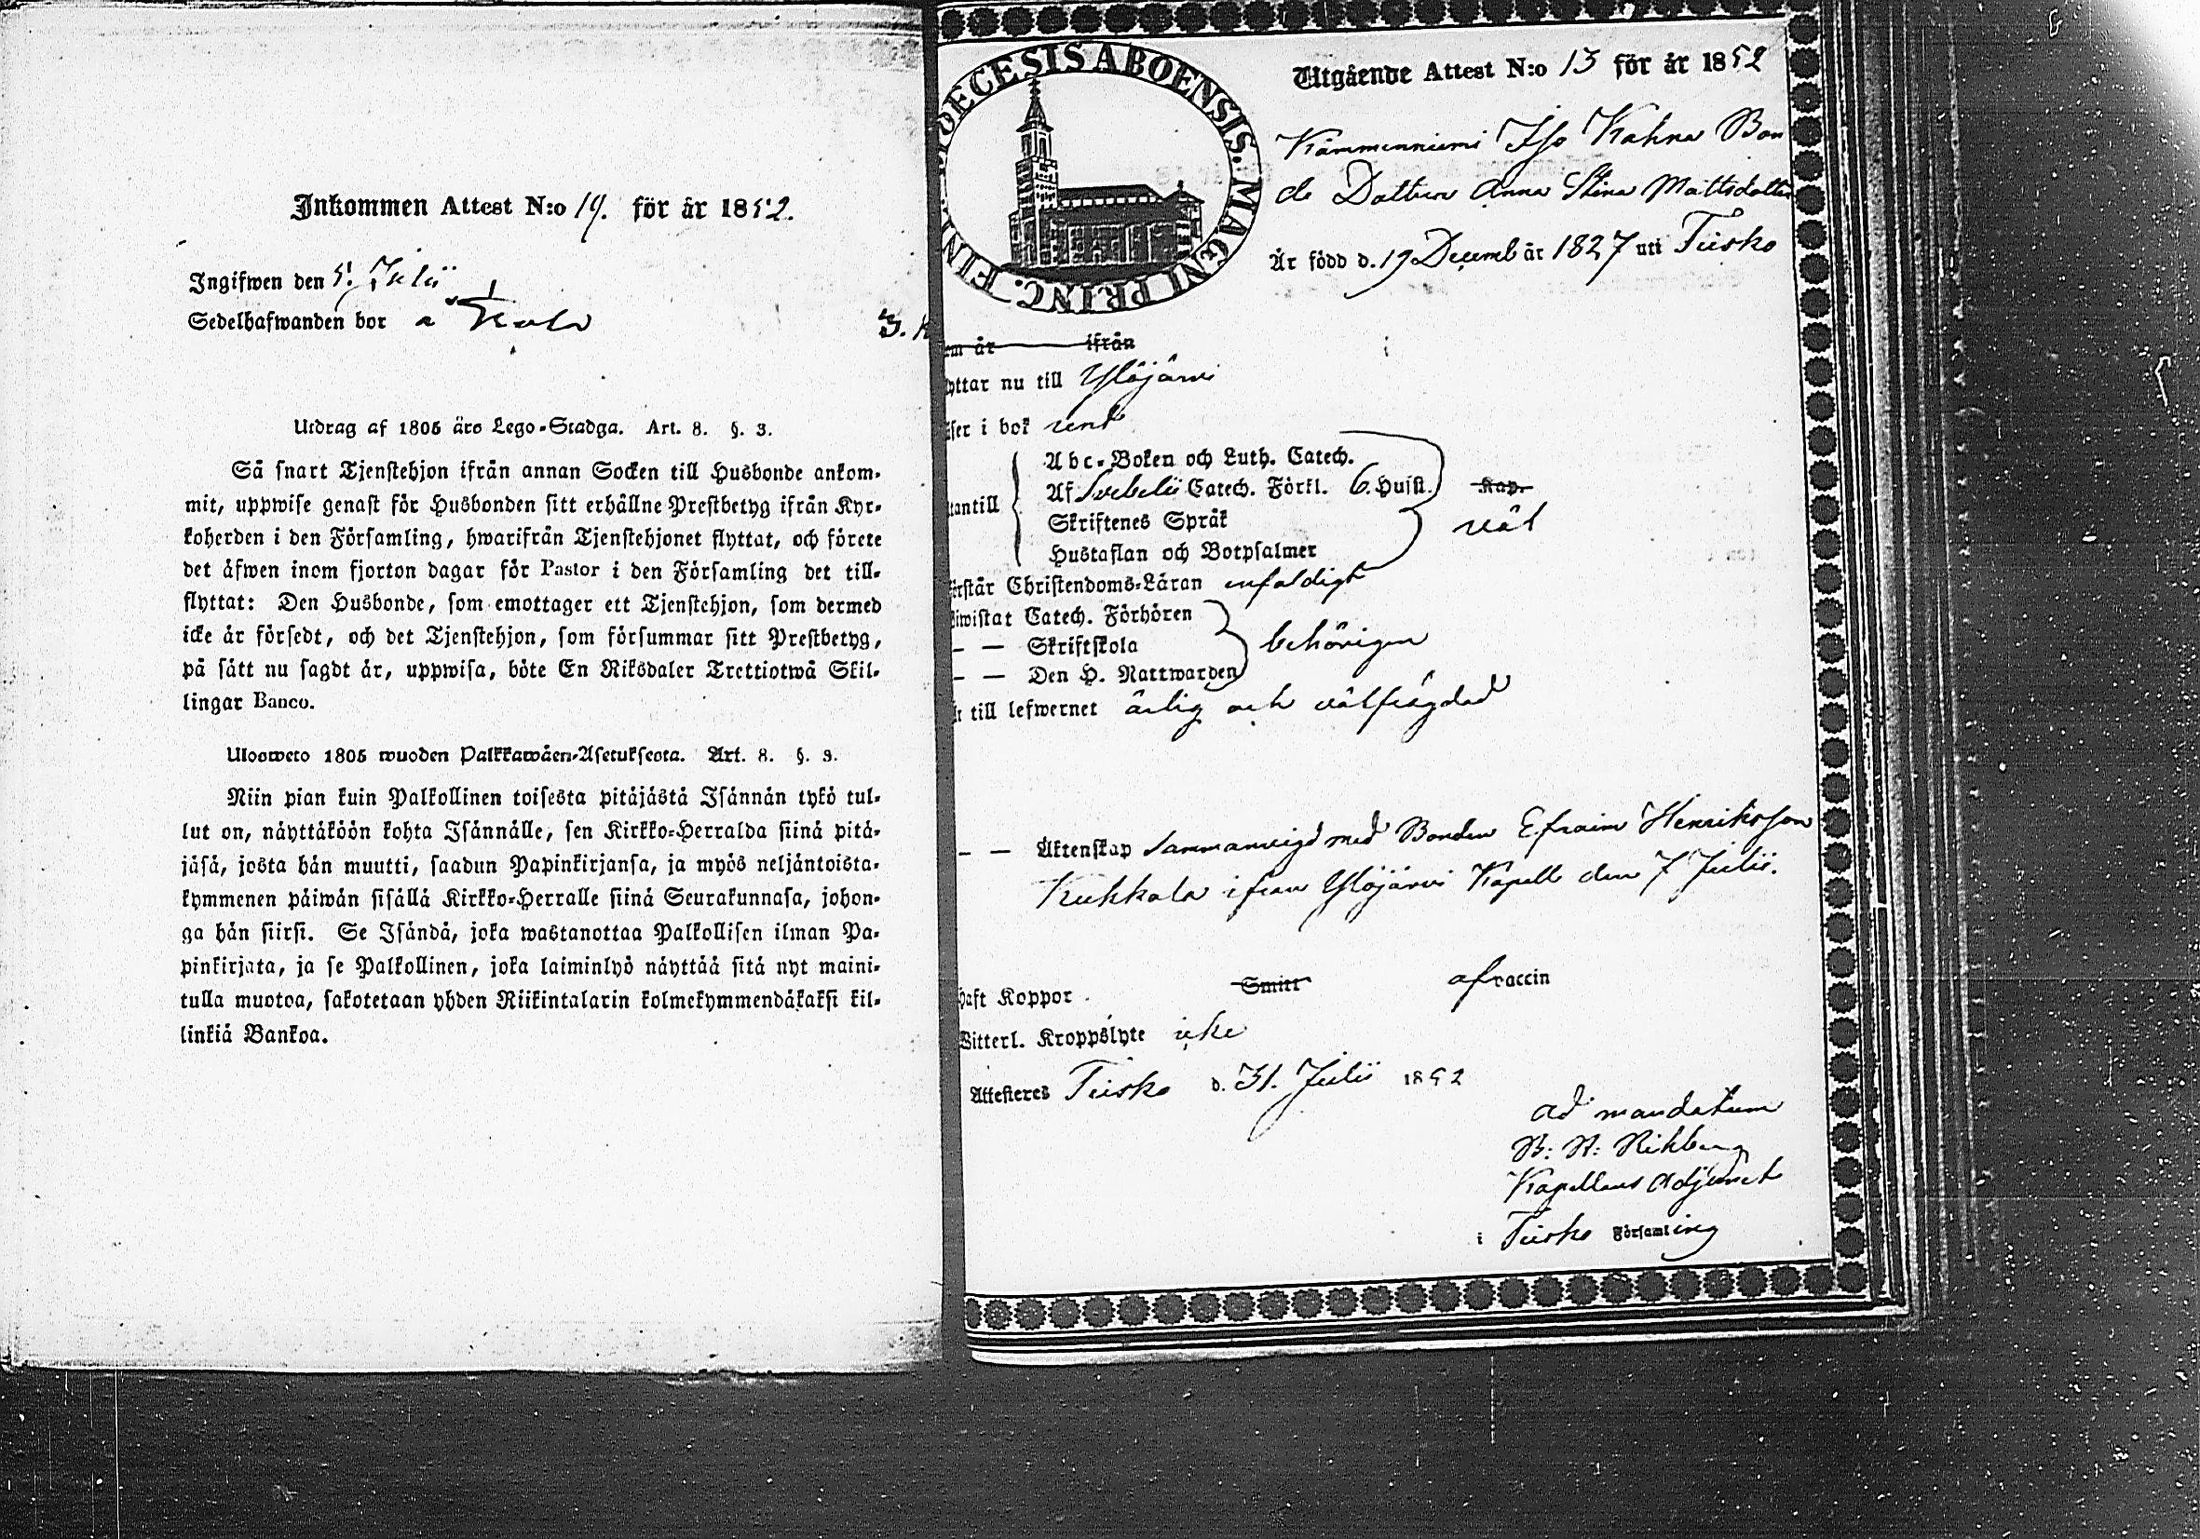 Inkommen Attest N:o 19. för år 1852.
Ingifwen den 5. Julii
Sedelhafwanden bor a
Utdrag af 1805 års Lego-Stadga. Art. 8. §. 3.
Så snart Tjenstehjon ifrån annan Socken till Husbonde ankom-
mit, uppwise genast för Husbonden sitt erhållne Prestbetyg ifrån Kyr-
koherden i den Församling, hwarifrån Tjenstehjonet flyttat, och förete
det äfwen inom fjorton dagar för Pastor i den Församling det till-
flyttat: Den Husbonde, som emottager ett Tjenstehjon, som dermed
icke är försedt, och det Tjenstehjon, som försummar sitt Prestbetyg,
på sätt nu sagdt är, uppwisa, böte En Riksdaler Trettiotwå Skil-
lingar Banco.
Ulosweto 1805 wuoden Palkkawäen-Asetuksesta. Art. 8. §. 3.
Niin pian kuin Palkollinen toisesta pitäjästä Isännän tykö tul-
lut on, näyttäköön kohta Isännälle, sen Kirkko-Herralda siinä pitä-
jäsä, josta hän muutti, saadun Papinkirjansa, ja myös neljäntoista-
kymmenen päiwän sisällä Kirkko-Herralle siinä Seurakunnasa, johon-
ga hän siirsi. Se Isändä, joka wastanottaa Palkollisen ilman Pa-
pinkirjata, ja se Palkollinen, joka laiminlyö näyttää sitä nyt maini-
tulla muotoa, sakotetaan yhden Riikintalarin kolmekymmendäkaksi kil-
linkiä Bankoa.
DIOECESIS ABOENSIS. MAGNI PRINC. FINL.
Utgående Attest N:o 13 för år 1852
Kämmenniemi Iso Kahra Bon
de Dottren Anna Stina Mattsdotter
Är född d. 19 Decemb år 1827 uti Teisko
om år ifrån
yttar nu till Ylöjärvi
äser i bok rent
Abc-Boken och Luth. Catech.
Af Svebelii Catech. Förkl. 6. Huft. Kap.
utantill
väl
Skriftenes Språk
Hustaflan och Botpsalmer
Förstår Christendoms-Läran enfaldigt
Biwistat Catech. Förhören
– – Skriftskola behörigen
– – Den H. Nattwarden
Är till lefwernet ärlig och välfrägdad
– – Äktenskap Sammanvigd med Bonden Efraim Henriksson
Kuhkala ifrån Ylöjärvi Kapell den 7 Julii.
haft Koppor Smitt af vaccin
Witterl. Kroppslyte icke
Attesteres Teisko d. 31. Julii 1852
ad mandatum
Kapellans Adjunct
i Teisko Församling